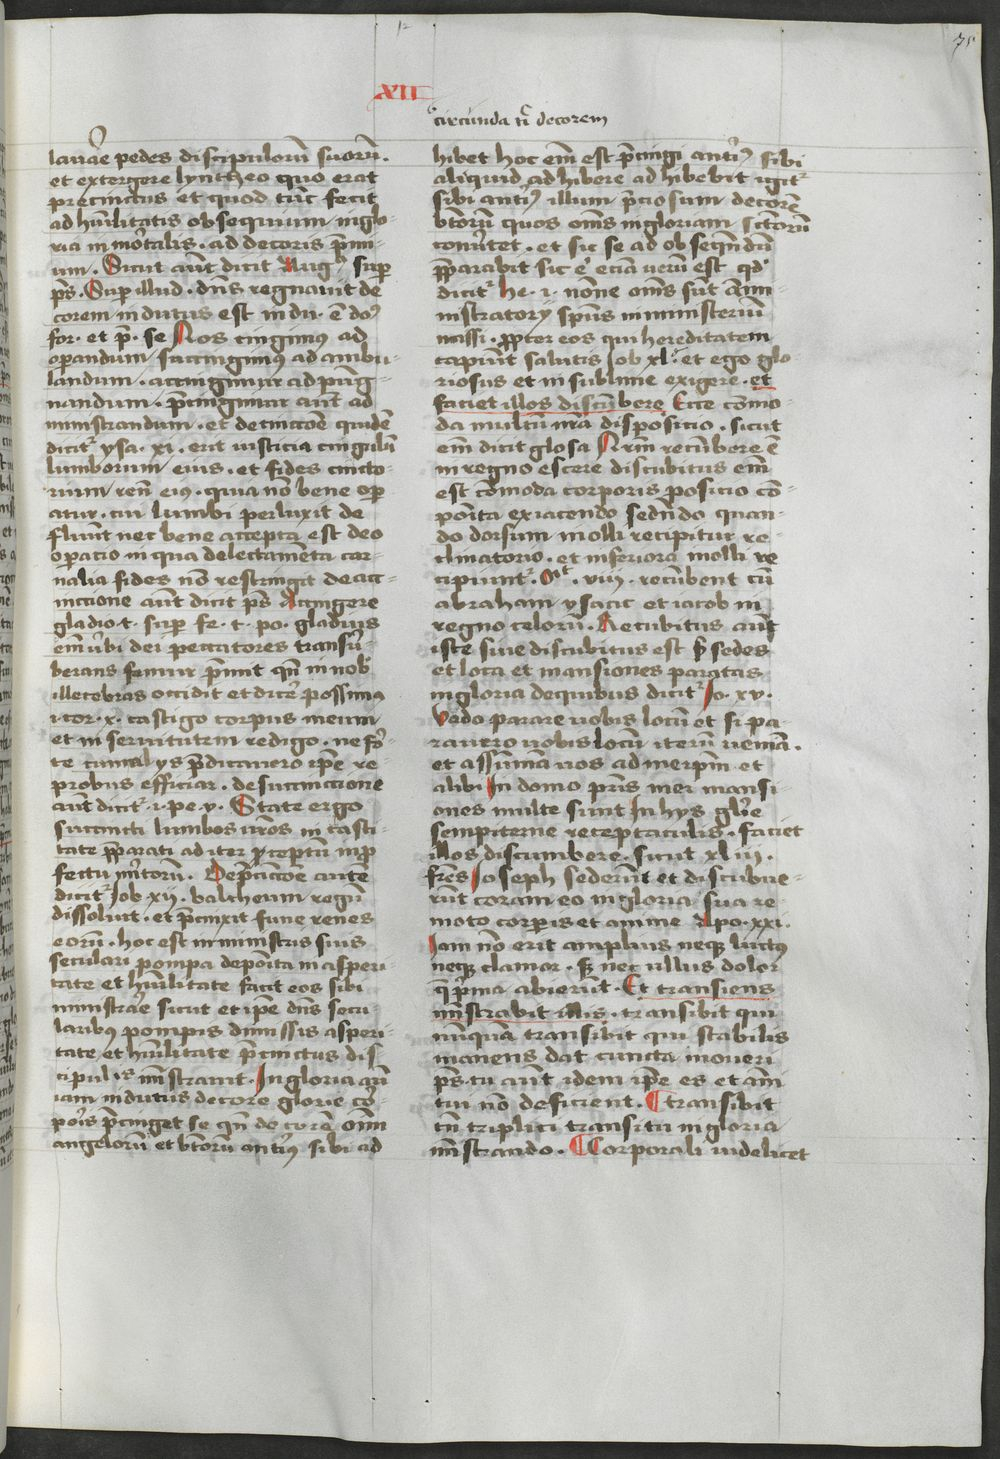 12
75
XII
circunda tͥ decorem
lauare pedes discipuloru̅ suoru̅.
et extergere lyntheo quo erat
precinctus et quod tu̅c fecit
ad hu̅ilitatis obsequium in glo-
ria inmortalis. ad decoris p̅mi-
um. Sicut au̅t dicit Aug. sup̅
ps̅. Sup̅ illud. dn̅s regnauit de
corem indutus est indu. e̅ do9
for. et p̅. se Nos cingimus ad
op̅andum succingimus ad ambu-
landum. accingimur ad pu̅g-
nandum. p̅cingimur au̅t ad
ministrandum. et de cinctio̅e quide̅
dicit᷑ ysa. xi. erit iusticia cingulu̅
lumborum eius. et fides cincto-
rium ren̅ ei9. quia no̅ bene op̅
atur. cui lumbi per luxu̅ de
fluu̅t nec bene accepta est deo
op̅acio in qua delectame̅ta car-
nalia fides no̅ restringit de acc-
inccione au̅t dicit ps̅ Accingere
gladio .t. sup̅ fe. t. po. gladius
em̅ v̅bi dei peccatores transu̅-
berans femur p̅mit qn̅ in nob̅
illecebras occidit et dice̅ possimus
i. cor. x. castigo corpus meum
et in seruitutem redigo. ne fo̅-
te cum alys p̅dicauero ip̅e re
probus efficiar. de succinccione
aut dicit᷑ .i. pe. y. State ergo
succincti lumbos vr̅os in casti
tate p̅parati ad iter p̅ceptu̅ in p̅
fectu m̅toru̅. De p̅cinctio̅e aute̅
dicit᷑ Job xij. baltheum regu̅
dissoluit. et p̅cinxit fune renes
eoru̅. hoc est in ministris suis
seculari pompa depo̅ita in asperi-
tate et hu̅ilitate facit eos sibi
ministrare sicut et ip̅e dn̅s secu
larib9 pompis dimissis asperi-
tate et hu̅ilitate p̅cinctus dis
cipulis mi̅strauit. In gloria au̅
iam indutus decore glorie co̅-
p̅ois p̅cinget se qn̅ decore̅ om̅i
angeloru̅ et bt̅oru̅ anti9 sibi ad
hibet hoc em̅ est p̅cingi anti9 sibi
aliquid adhibere adhibebit igit᷑
sibi anti9 illum p̅ciosum decore̅
bt̅oru̅ quos om̅s in gloriam sctoru̅
conu̅tet. et sic se ad obseqn̅du̅
p̅parabit sic e̅ eciam veru̅ est qd̅
dicit᷑ he. i. nonne om̅s su̅t a̅mi
nistratorij sp̅us in ministeriu̅
missi. pp̅ter eos qui hereditatem
capiu̅t salutis Job xl. et ego glo
riosus et in sublime exigere. et
faciet illos discu̅bere Ecce co̅mo-
da multu̅ vr̅a dispositio. sicut
em̅ dicit glosa Nrm̅ recu̅bere e̅
in regno escere discubitus em̅
est co̅moda corporis posicio co̅-
po̅ita ex iacendo sede̅do quan-
do dorsum molli recipitur re-
clinatorio. et inferiora molli re
cipiunt᷑. Mt. viij. recu̅bent cu̅
abraham ysaac et iacob in
regno celoru̅. Recubitus au̅t
iste siue discubitus est p̅ sedes
et loca et mansiones paratas
in gloria de quibus dicit᷑ Jo. xv.
Vado parare uobis locu̅ et si pa-
rauero uobis locu̅ iteru̅ venia̅.
et assuma̅ uos ad meip̅m et
alibi In domo pr̅is mei mansi-
ones multe sunt In hys gl̅ie
sempiterne receptaculis. faciet
illos discumbere. sicut xliij.
fr̅es Joseph sederu̅t et discubue-
ru̅t coram eo in gloria sua re-
moto corp̅is et anime Apo. xxi.
Iam no̅ erit amplius neq3 luct9
neq3 clamor. s3 nec ullus dolor
q̅ p̅ma abieru̅t. Et transiens
mi̅strabit illis. transibit qui
nu̅qua̅ transibit qui stabilis
manens dat cuncta moueri
ps̅. tu au̅t idem ip̅e es et an̅i
tui no̅ deficient. ¶ transibit
em̅ triplici transitu in gloria
mi̅strando. ¶ Corporali uidelicet